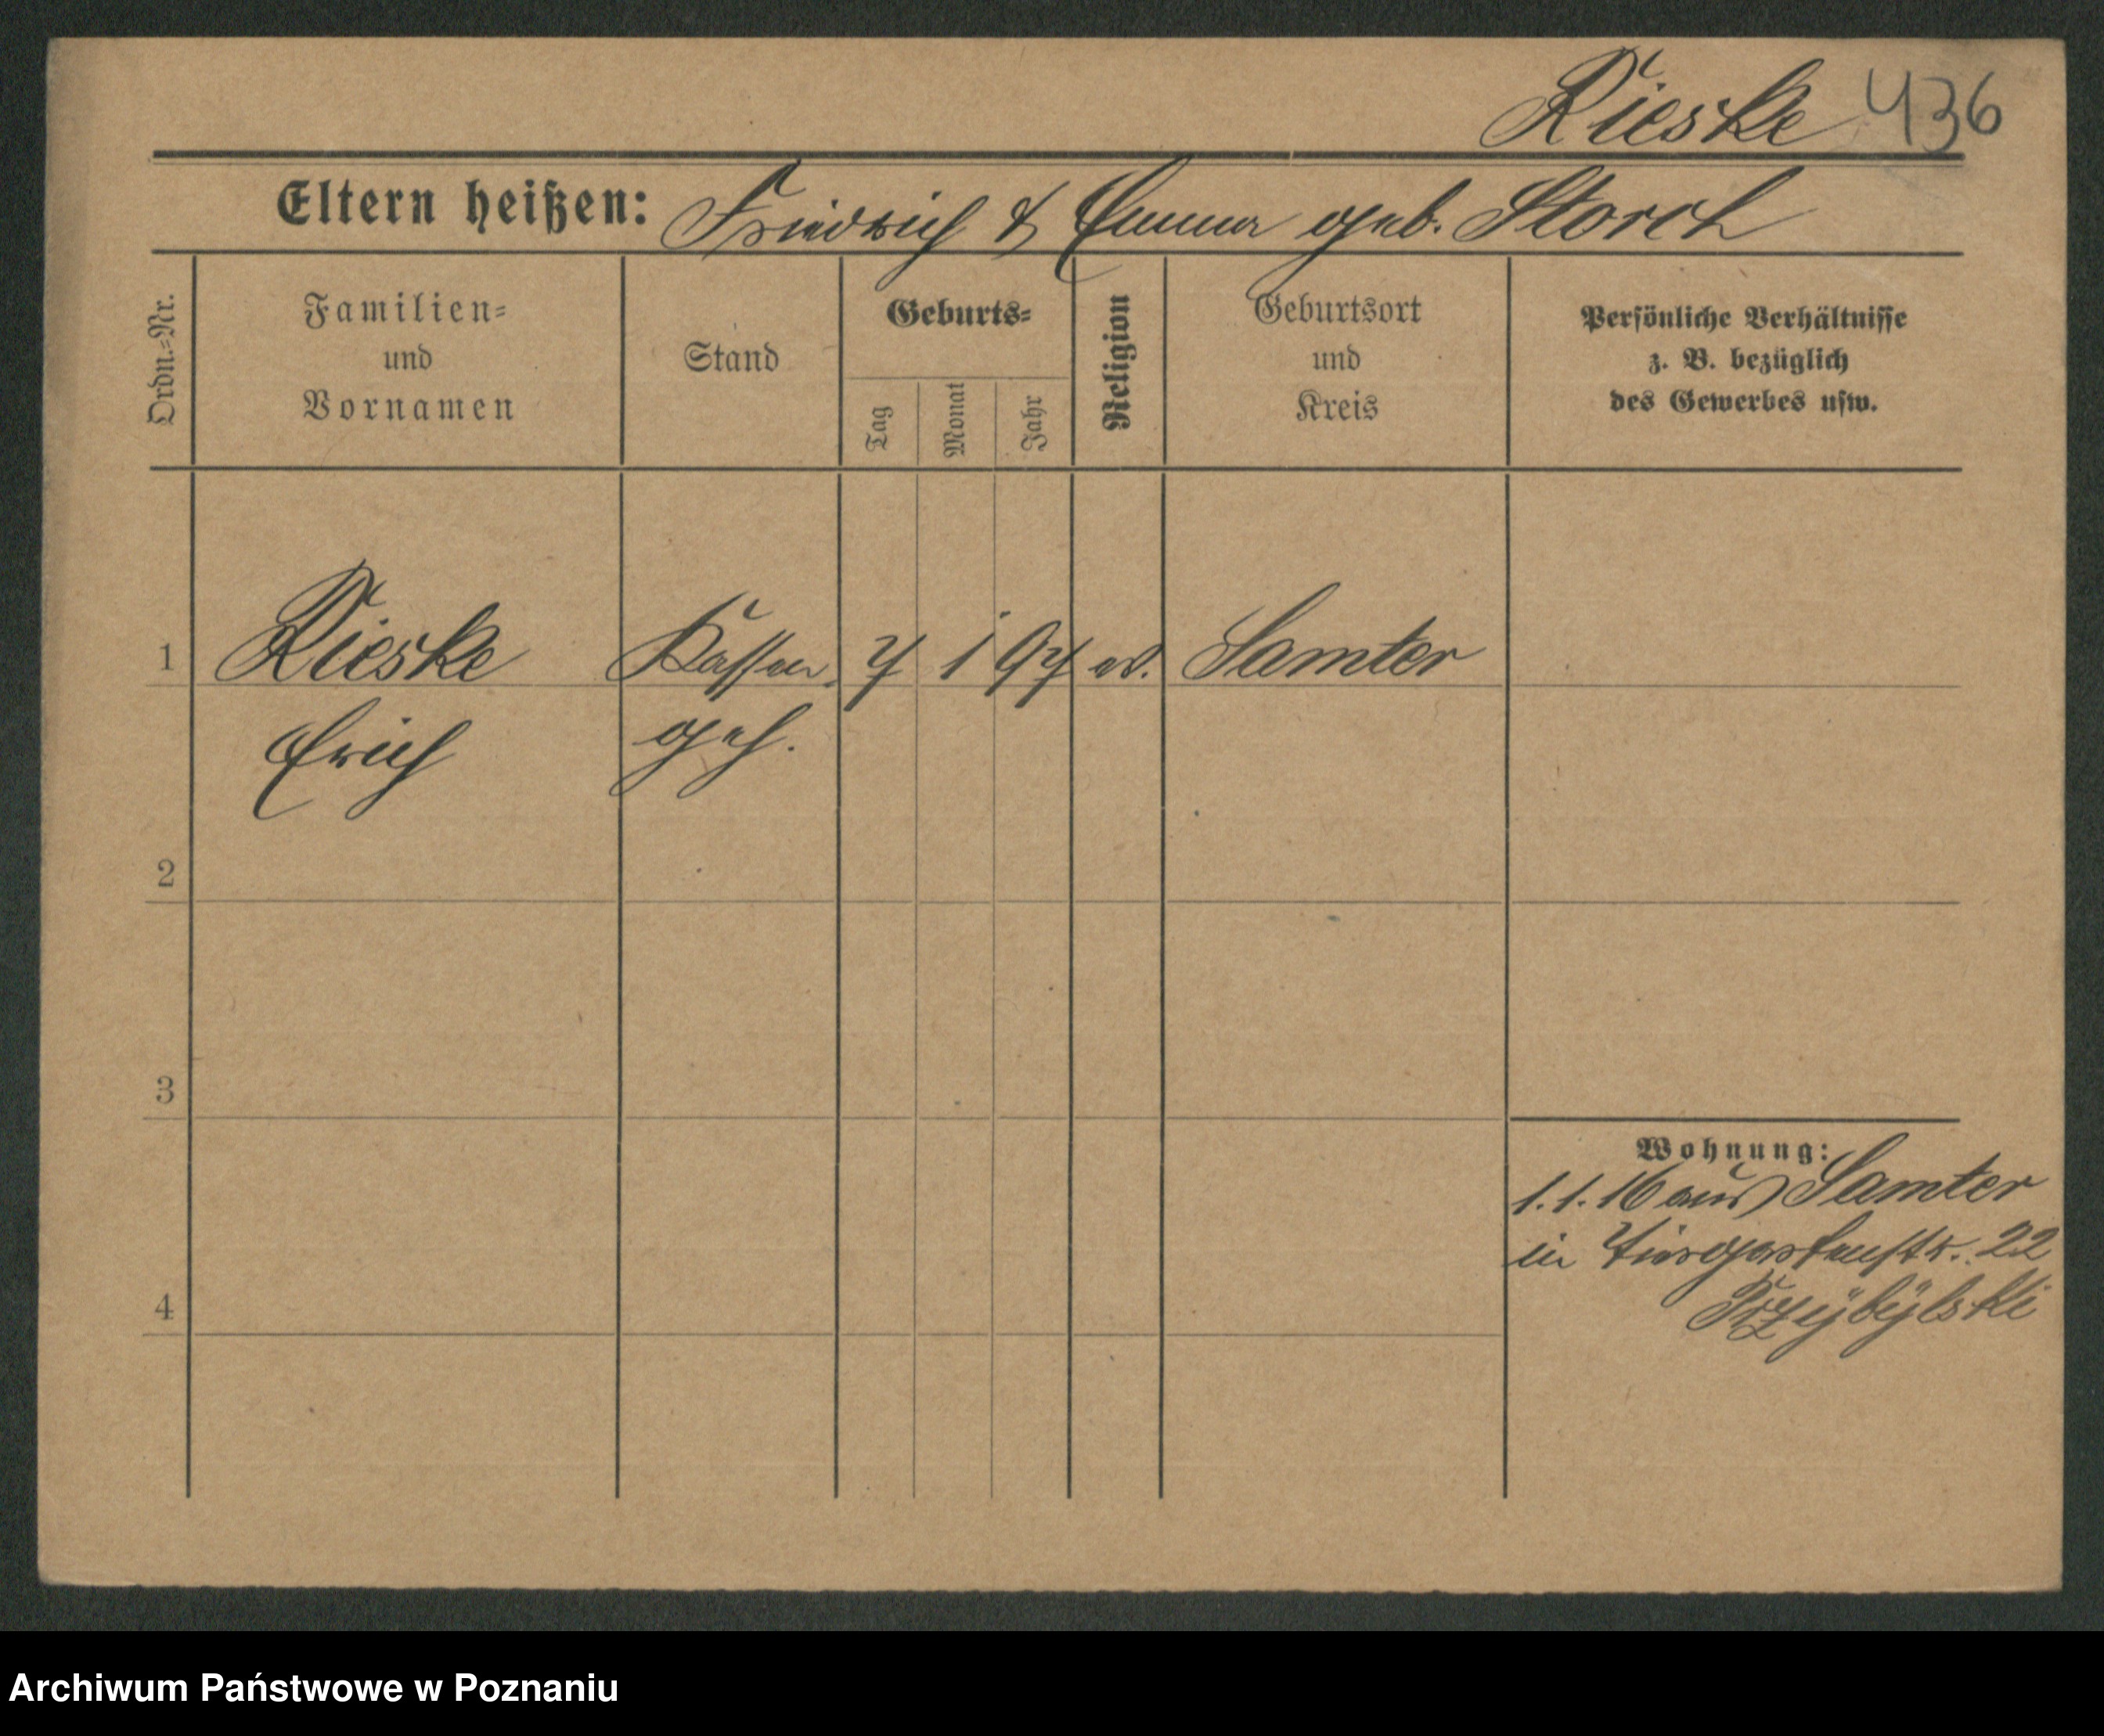 Rieske 436
Eltern heißen: Friedrich & Emma geb. Storch
Ordn.=Nr.
Familien=
und
Vornamen
Stand
Geburts=
Tag
Monat
Jahr
Religion
Geburtsort
und
Kreis
Persönliche Verhältnisse
z. B. bezüglich
des Gewerbes usw.
1 Rieske Kassen 7 1 97 ev. Samter
Erich geh.
2
3
Wohnung:
1.1.16 aus Samter
in Tiergartenstr. 22
Przybylski
4
Archiwum Państwowe w Poznaniu